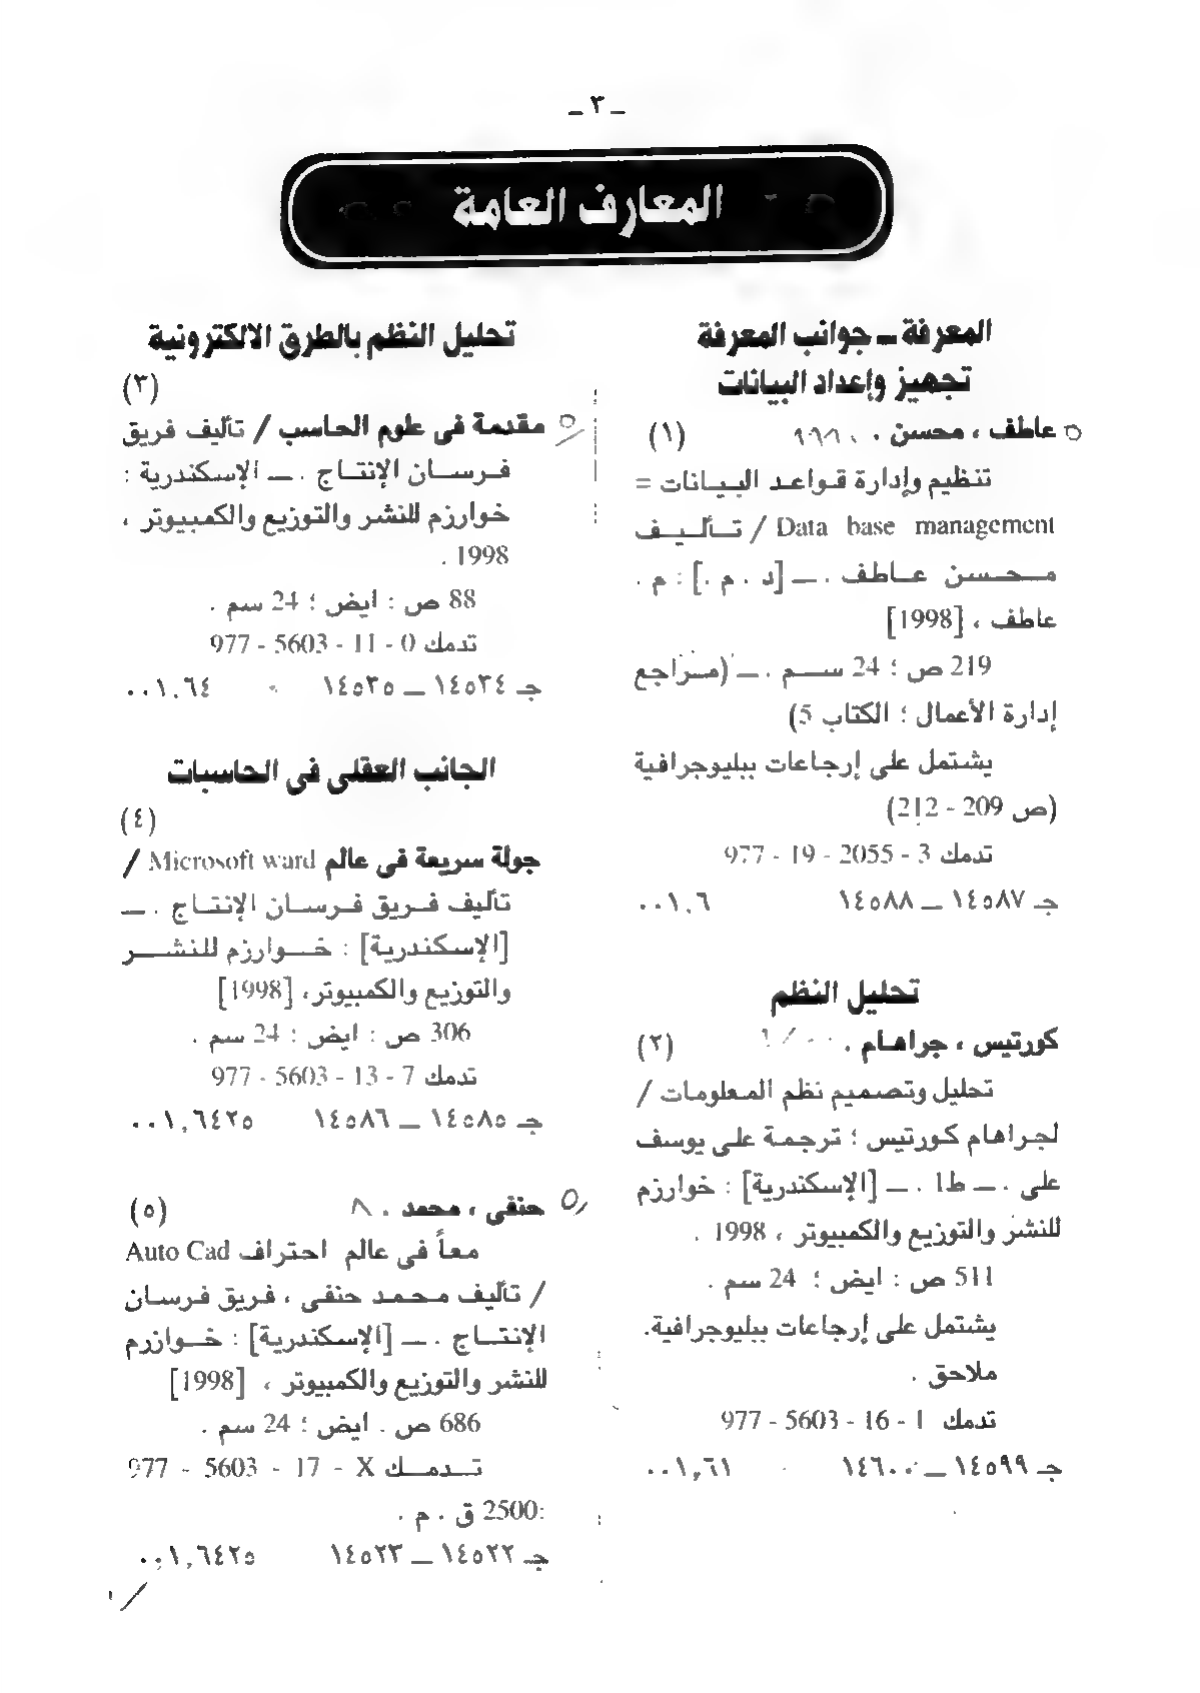 ـ ٣ ـ
المعارف العامة
المعرفة ــ جوانب المعرفة
تجهيز وإعداد البيانات
عاطف ، محسن . (١)
تنظيم وإدارة قواعد البيانات =
Data base management / تأليف
محسن عاطف . ــ [د . م .] : م .
عاطف ، [1998]
219 ص ؛ 24 سم . ــ (مراجع
إدارة الأعمال ؛ الكتاب 5)
يشتمل على إرجاعات ببليوجرافية
(ص 209 - 212)
تدمك 3 - 2055 - 19 - 977
جـ ١٤٥٨٧ ــ ١٤٥٨٨ ٠٠١,٦
تحليل النظم
كورتيس ، جراهام . (٢)
تحليل وتصميم نظم المعلومات /
لجراهام كورتيس ؛ ترجمة على يوسف
على . ــ ط1 . ــ [الإسكندرية] : خوارزم
للنشر والتوزيع والكمبيوتر ، 1998 .
511 ص : ايض ؛ 24 سم .
يشتمل على إرجاعات ببليوجرافية.
ملاحق .
تدمك 1 - 16 - 5603 - 977
جـ ١٤٥٩٩ ــ ١٤٦٠٠ ٠٠١,٦١
تحليل النظم بالطرق الالكترونية
(٣)
مقدمة فى علوم الحاسب / تأليف فريق
فرسان الإنتاج . ــ الإسكندرية :
خوارزم للنشر والتوزيع والكمبيوتر ،
1998 .
88 ص : ايض ؛ 24 سم .
تدمك 0 - 11 - 5603 - 977
جـ ١٤٥٣٤ ــ ١٤٥٣٥ ٠٠١,٦٤
الجانب العقلى فى الحاسبات
(٤)
جولة سريعة فى عالم Microsoft ward /
تأليف فريق فرسان الإنتاج . ــ
[الإسكندرية] : خوارزم للنشر
والتوزيع والكمبيوتر، [1998]
306 ص : ايض : 24 سم .
تدمك 7 - 13 - 5603 - 977
جـ ١٤٥٨٥ ــ ١٤٥٨٦ ٠٠١,٦٤٢٥
حنفى ، محمد . (٥)
معاً فى عالم احتراف Auto Cad
/ تأليف محمد حنفى ، فريق فرسان
الإنتاج . ــ [الإسكندرية] : خوازرم
للنشر والتوزيع والكمبيوتر ، [1998]
686 ص . ايض ؛ 24 سم .
تدمك X - 17 - 5603 - 977
:2500 ق . م .
جـ ١٤٥٢٢ ــ ١٤٥٢٣ ٠٠١,٦٤٢٥